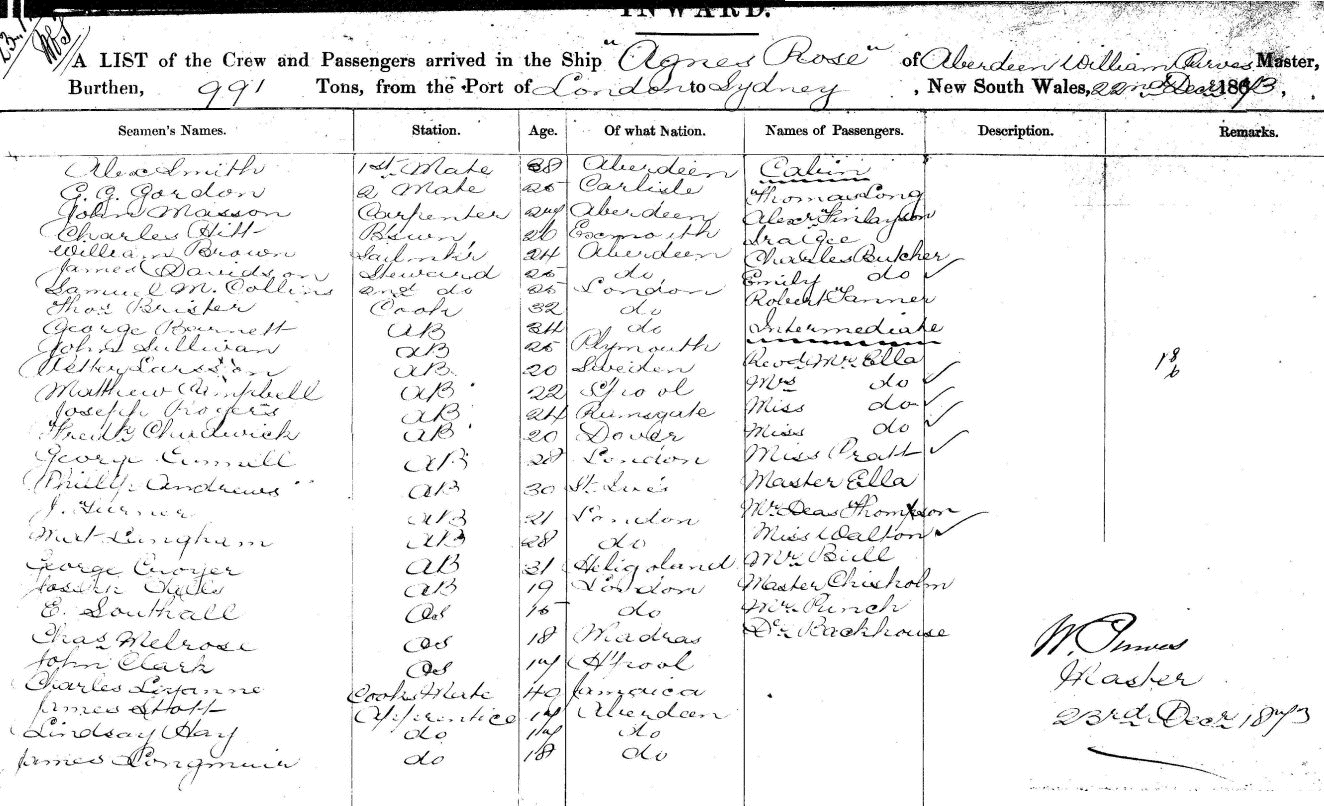 INWARD.
A LIST of the Crew and Passengers arrived in the Ship "Agnes Rose" of Aberdeen William Purves Master,
Burthen, 991 Tons, from the Port of London to Sydney, New South Wales, 22nd Decr 1873,
Seamen's Names. Station. Age. Of what Nation. Names of Passengers. Description. Remarks.
Alex Smith 1st Mate 38 Aberdeen Cabin
G. G. Gordon 2 Mate 25 Carlisle Thomas Long
John Masson Carpenter 27 Aberdeen Alexr Finlayson
Charles Hitt Bswn 26 Exmouth Ira Gee
William Brown Sailmkr 24 Aberdeen Charles Butcher
James Davidson Steward 25 do Emily do
Samuel M. Collins 2nd do 25 London Robert Tanner
Thos Brister Cook 32 do
George Barnett AB 34 do Intermediate
John Sullivan AB 25 Plymouth Revd Mr Ella
Larsson AB 20 Sweden Mrs do
Matthew Campbell AB 22 L'pool Miss do
Joseph Rogers AB 24 Ramsgate Miss do
Fredk Chadwick AB 20 Dover Miss Pratt
George Cumell AB 28 London Master Ella
Philip Andrews AB 30 St. Ives Mr Deas Thompson
J. Turner AB 21 London Miss Walton
Lungham AB 28 do Mr Bull
George AB 31 Heligoland Master Chisholm
Joseph AB 19 London Mr Punch
E. Southall OS 15 do Dr Backhouse
Chas Melrose OS 18 Madras
John Clark OS 17 H'pool
Charles Cooks Mate 40 Jamaica
James Stott Apprentice 17 Aberdeen
Lindsay Hay do 17 do
James Longmuir do 18 do
18
6
W. Purves
Master
23rd Decr 1873